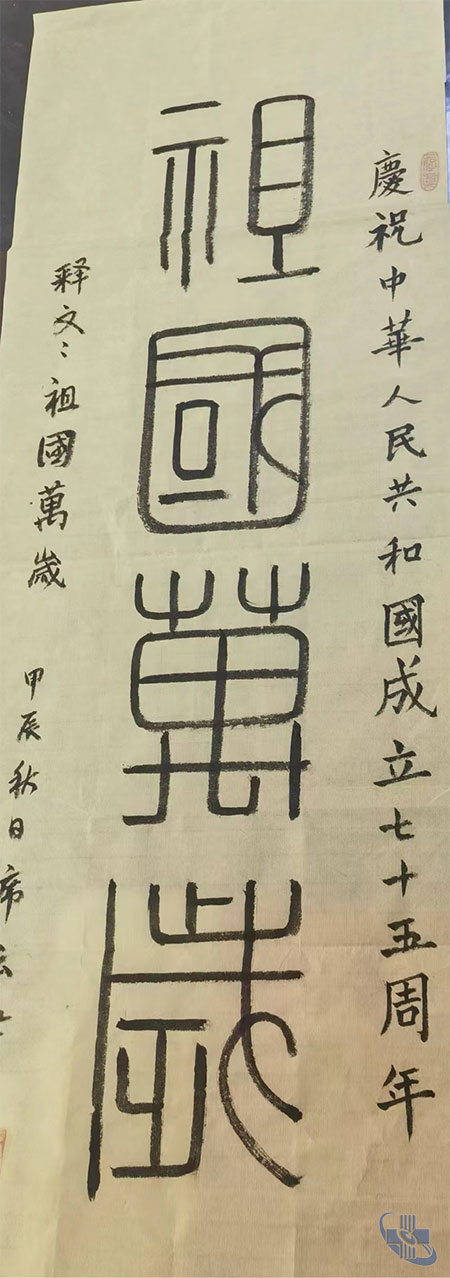 慶祝中華人民共和國成立七十五周年
祖國萬歲
释文：祖國萬歲
甲辰秋日席